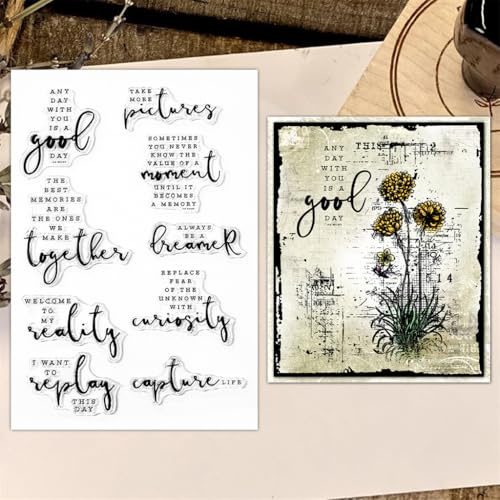 ANY
DAY
WITH
YOU
IS A
good
DAY
TAKE
MORE
pictures
SOMETIMES
YOU NEVER
KNOW THE
VALUE OF A
moment
UNTIL IT
BECOMES
A MEMORY
THE
BEST
MEMORIES
ARE THE
ONES WE
MAKE
together
ALWAYS
BE A
dreameR
REPLACE
FEAR
OF THE
UNKNOWN
WITH
curiosity
WELCOME
TO
MY
reality
I WANT
TO
replay
THIS
DAY
capture LIFE
ANY
DAY
WITH
YOU
IS A
good
DAY
THIS
2
14